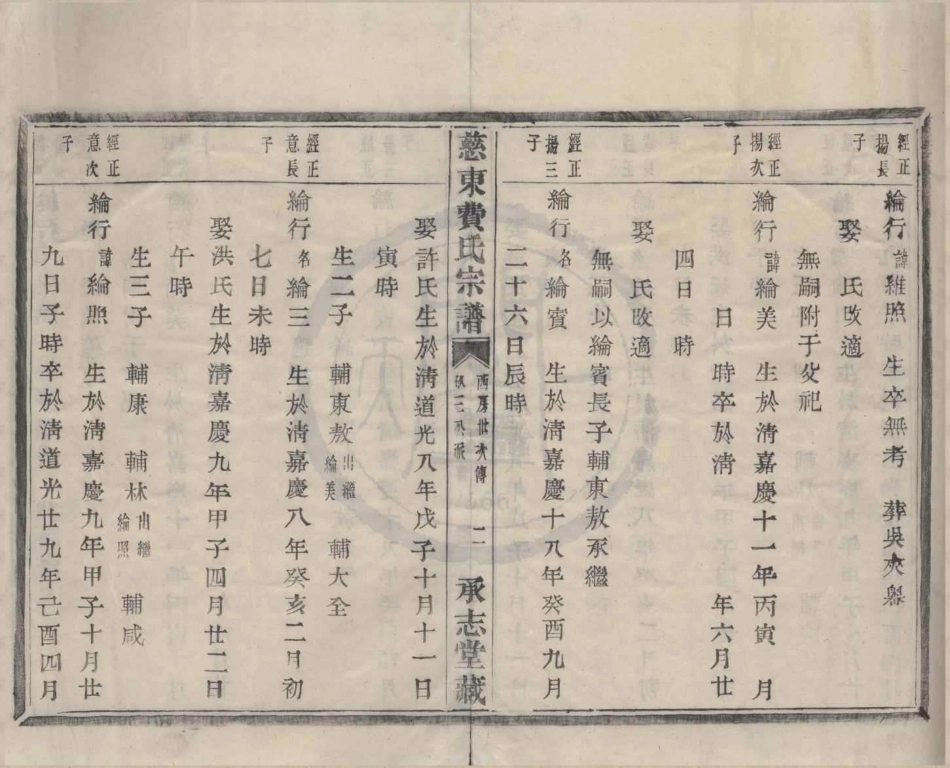 經正
揚長
子
綸行諱維照 生卒無考 葬吳夾
娶 氏改適
無嗣附于父祀
經正
揚次
子
綸行諱綸美 生於清嘉慶十一年丙寅 月
日 時卒於清 年六月廿
四日 時
娶 氏改適
無嗣以綸賓長子輔東敖承繼
經正
揚三
子
綸行名綸賓 生於清嘉慶十八年癸酉九月
二十六日辰時
娶許氏生於清道光八年戊子十月十一日
寅時
生二子 輔東敖出繼綸美 輔大全
慈東費氏宗譜 西房世次傳 三派 二 承志堂藏
經正
意長
子
綸行名綸三 生於清嘉慶八年癸亥二月初
七日未時
娶洪氏生於清嘉慶九年甲子四月廿二日
午時
生三子 輔康 輔林出繼綸照 輔咸
經正
意次
子
綸行諱綸照 生於清嘉慶九年甲子十月廿
九日子時卒於清道光廿九年己酉四月